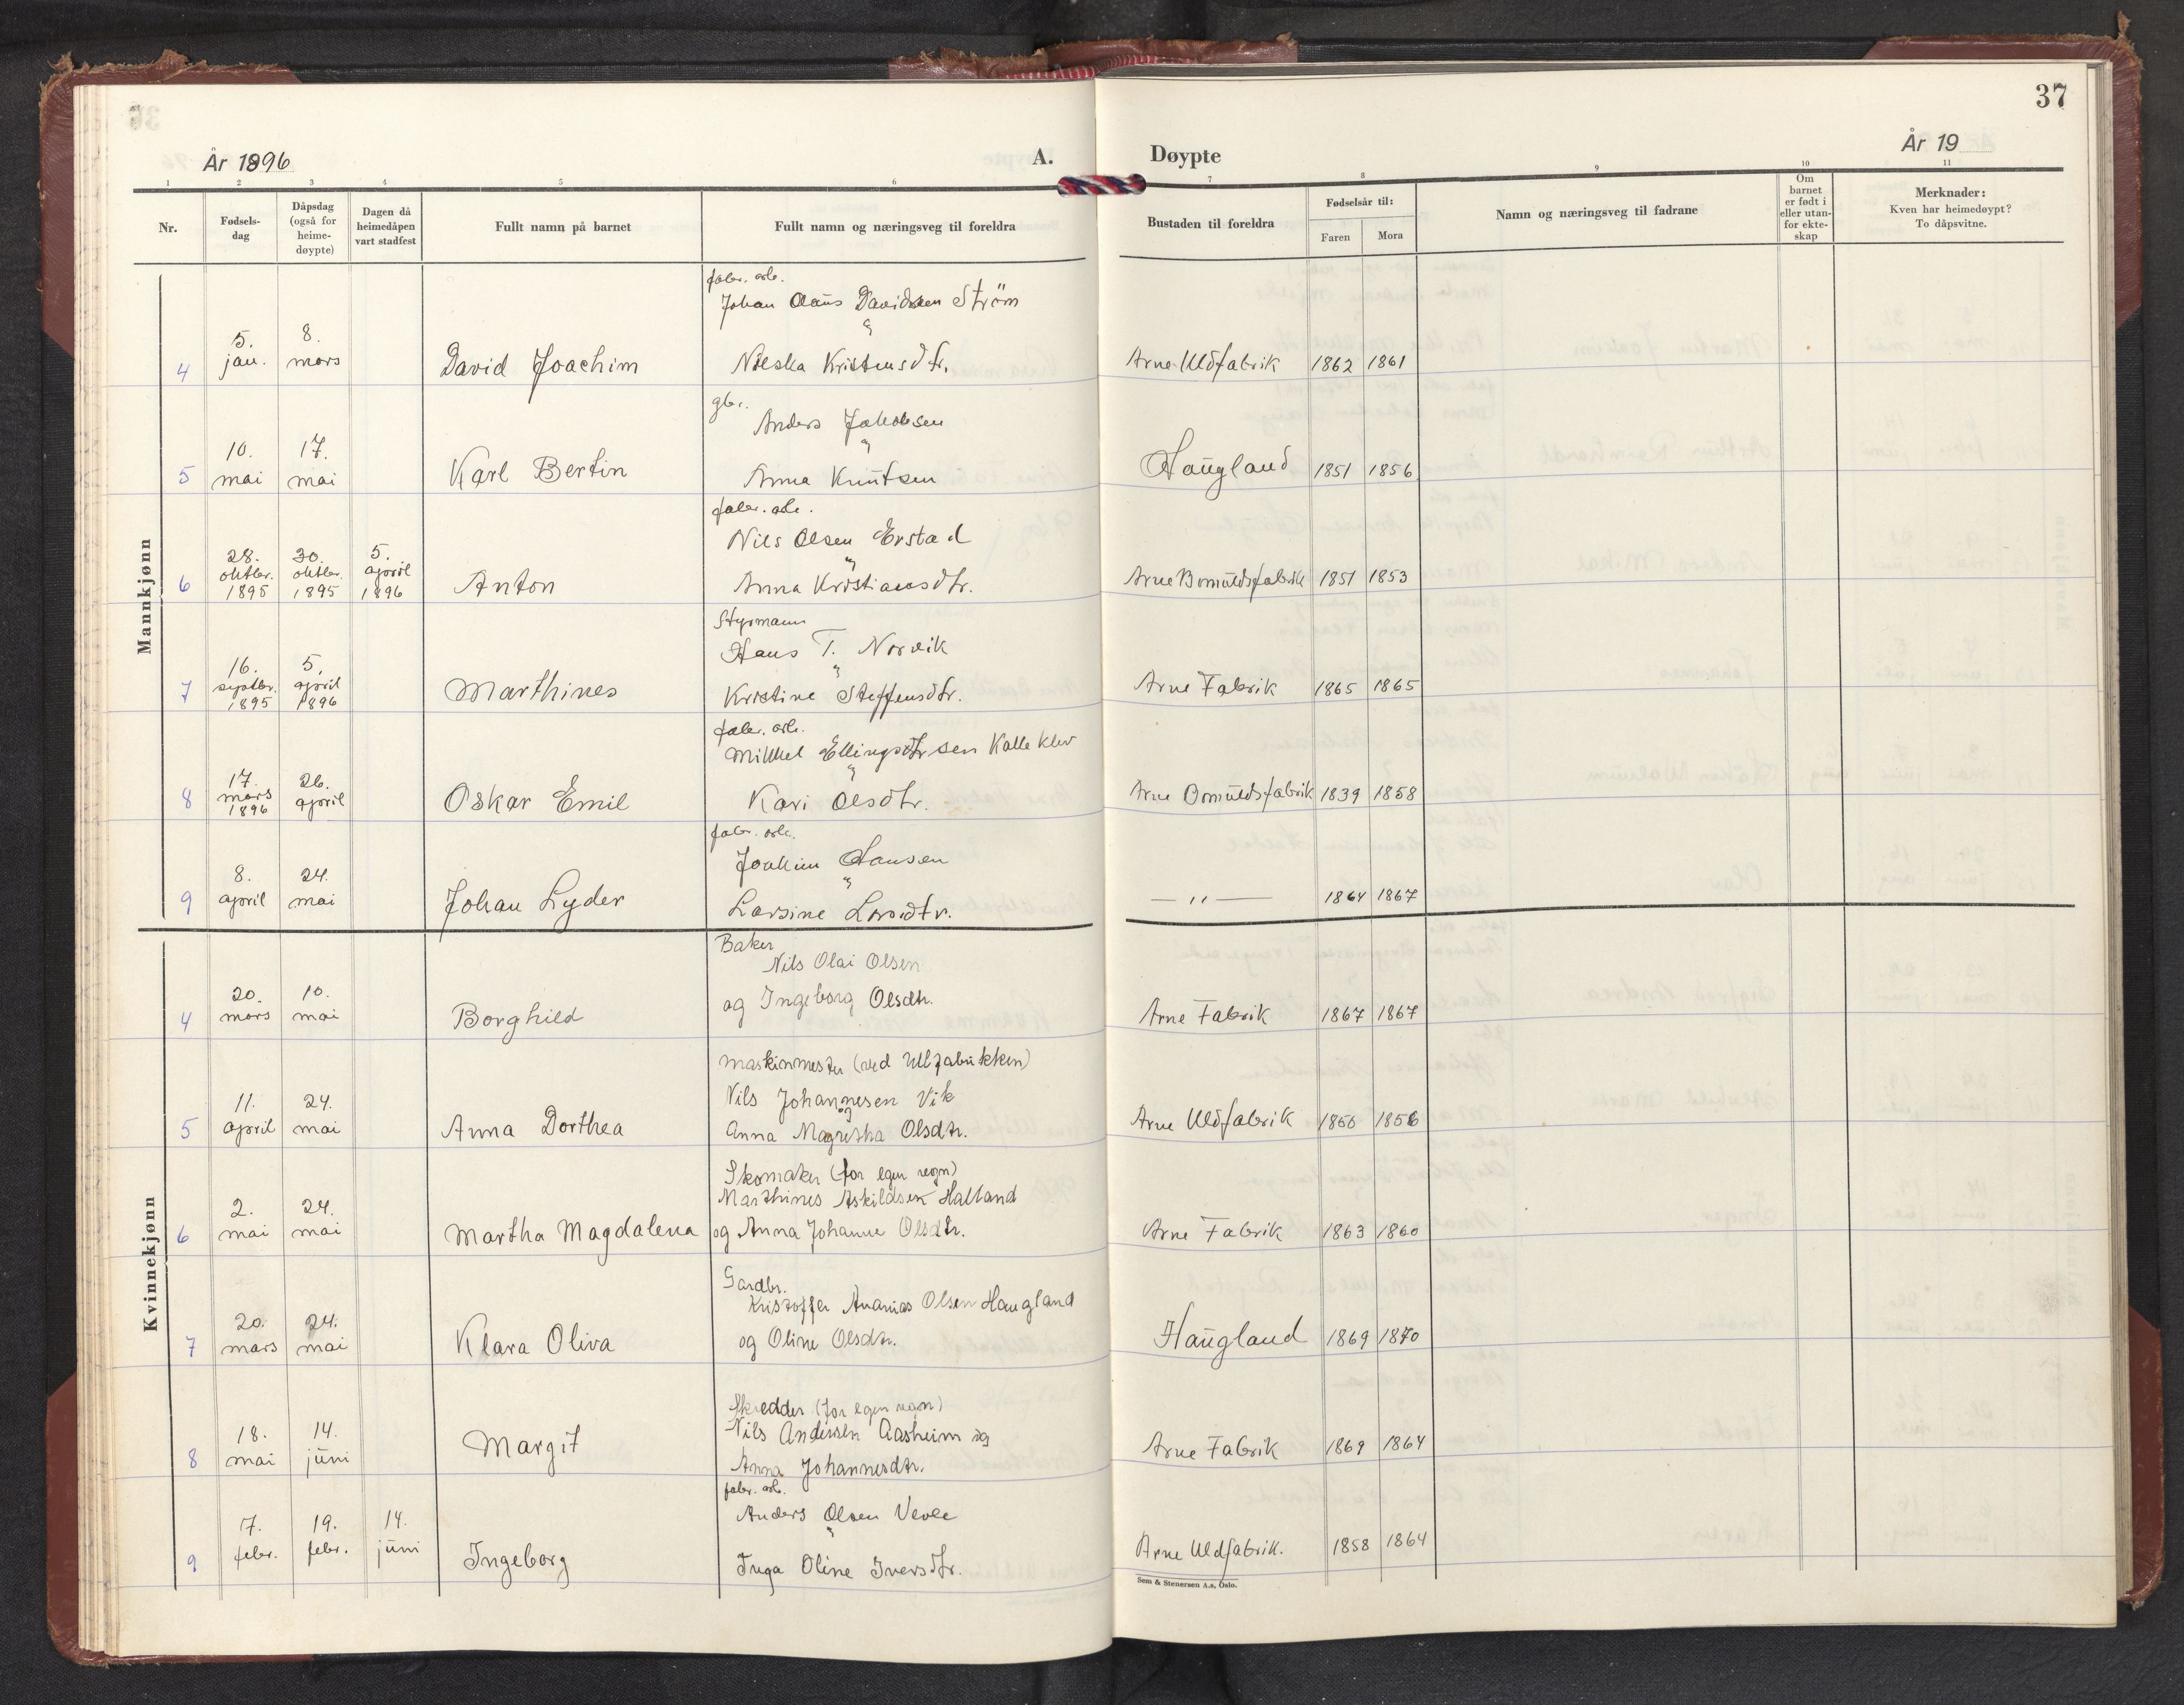 37
År 1896
A.
Døypte
År 19
1 2 3 4 5 6 7 8 9 10 11
Nr.
Fødsels-
dag
Dåpsdag
(også for
heime-
døypte)
Dagen då
heimedåpen
vart stadfest
Fullt namn på barnet
Fullt namn og næringsveg til foreldra
Bustaden til foreldra
Fødselsår til:
Faren
Mora
Namn og næringsveg til fadrane
Om
barnet
er født i
eller utan-
for ekte-
skap
Merknader:
Kven har heimedøypt?
To dåpsvitne.
Mannkjønn
fabr. arb.
Johan Claus Davidsen Strøm
og
4 5. jan. 8. mars David Joachim Kristensdtr. Arne Uldfabrik 1862 1861
gbr.
Anders Jakobsen
og
5 10. mai 17. mai Karl Bertin Anna Knutsen Haugland 1851 1856
fabr. arb.
Nils Olsen Erstad
og
6 28. oktbr. 1895 30. oktbr. 1895 5. april 1896 Anton Anna Kristiansdtr. Arne Bomuldsfabrik 1851 1853
Styrmann
Hans T. Norvik
og
7 16. septbr. 1895 5. april 1896 Marthines Kristine Steffensdtr. Arne Fabrik 1865 1865
fabr. arb.
Mikkel Kalleklev
og
8 17. mars 1896 26. april Oskar Emil Kari Olsdtr. Arne Bomuldsfabrik 1839 1858
fabr. arb.
Joakim Hansen
og
9 8. april 24. mai Johan Lyder Larsine Larsdtr. — " — 1864 1867
Kvinnekjønn
Baker
Nils Olai Olsen
og Ingeborg Olsdtr.
4 20. mars 10. mai Borghild Arne Fabrik 1867 1867
maskinmester (ved Ullfabrikken)
Nils Johannesen Vik
og
5 11. april 24. mai Anna Dorthea Anna Magretha Olsdtr. Arne Uldfabrik 1856
Skomaker (for egen regn)
Marthines Askildsen Halland
6 2. mai 24. mai Martha Magdalena og Anna Johanne Olsdtr. Arne Fabrik 1863 1860
Gardbr.
Kristoffer Ananias Olsen Haugland
7 20. mars 24. mai Klara Oliva og Oline Olsdtr. Haugland 1869 1870
Skredder (for egen regn)
Nils Andersen Aasheim og
8 18. mai 14. juni Margit Anna Johannesdtr. Arne Fabrik 1869 1864
fabr. arb.
Anders Olsen Vevle
og
9 7. febr. 19. febr. 14. juni Ingeborg Inga Oline Iversdtr. Arne Uldfabrik. 1858 1864
Sem & Stenersen A.s, Oslo.